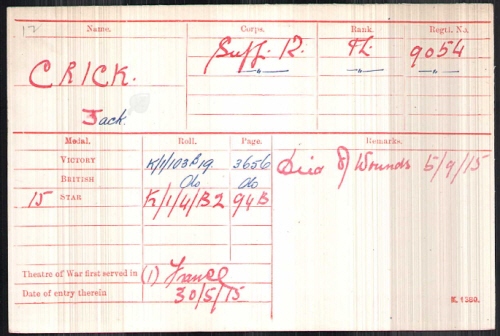 17 Name. Corps. Rank. Regtl. No.
CRICK. Suff. R. Pte. 9054
Jack. " " "
Medal. Roll. Page. Remarks.
VICTORY K/1/103B19 3656 Died of Wounds 5/9/15
BRITISH do do
15 STAR K/1/4/B2 94B
Theatre of War first served in (1) France
Date of entry therein 30/5/15
K. 1380.